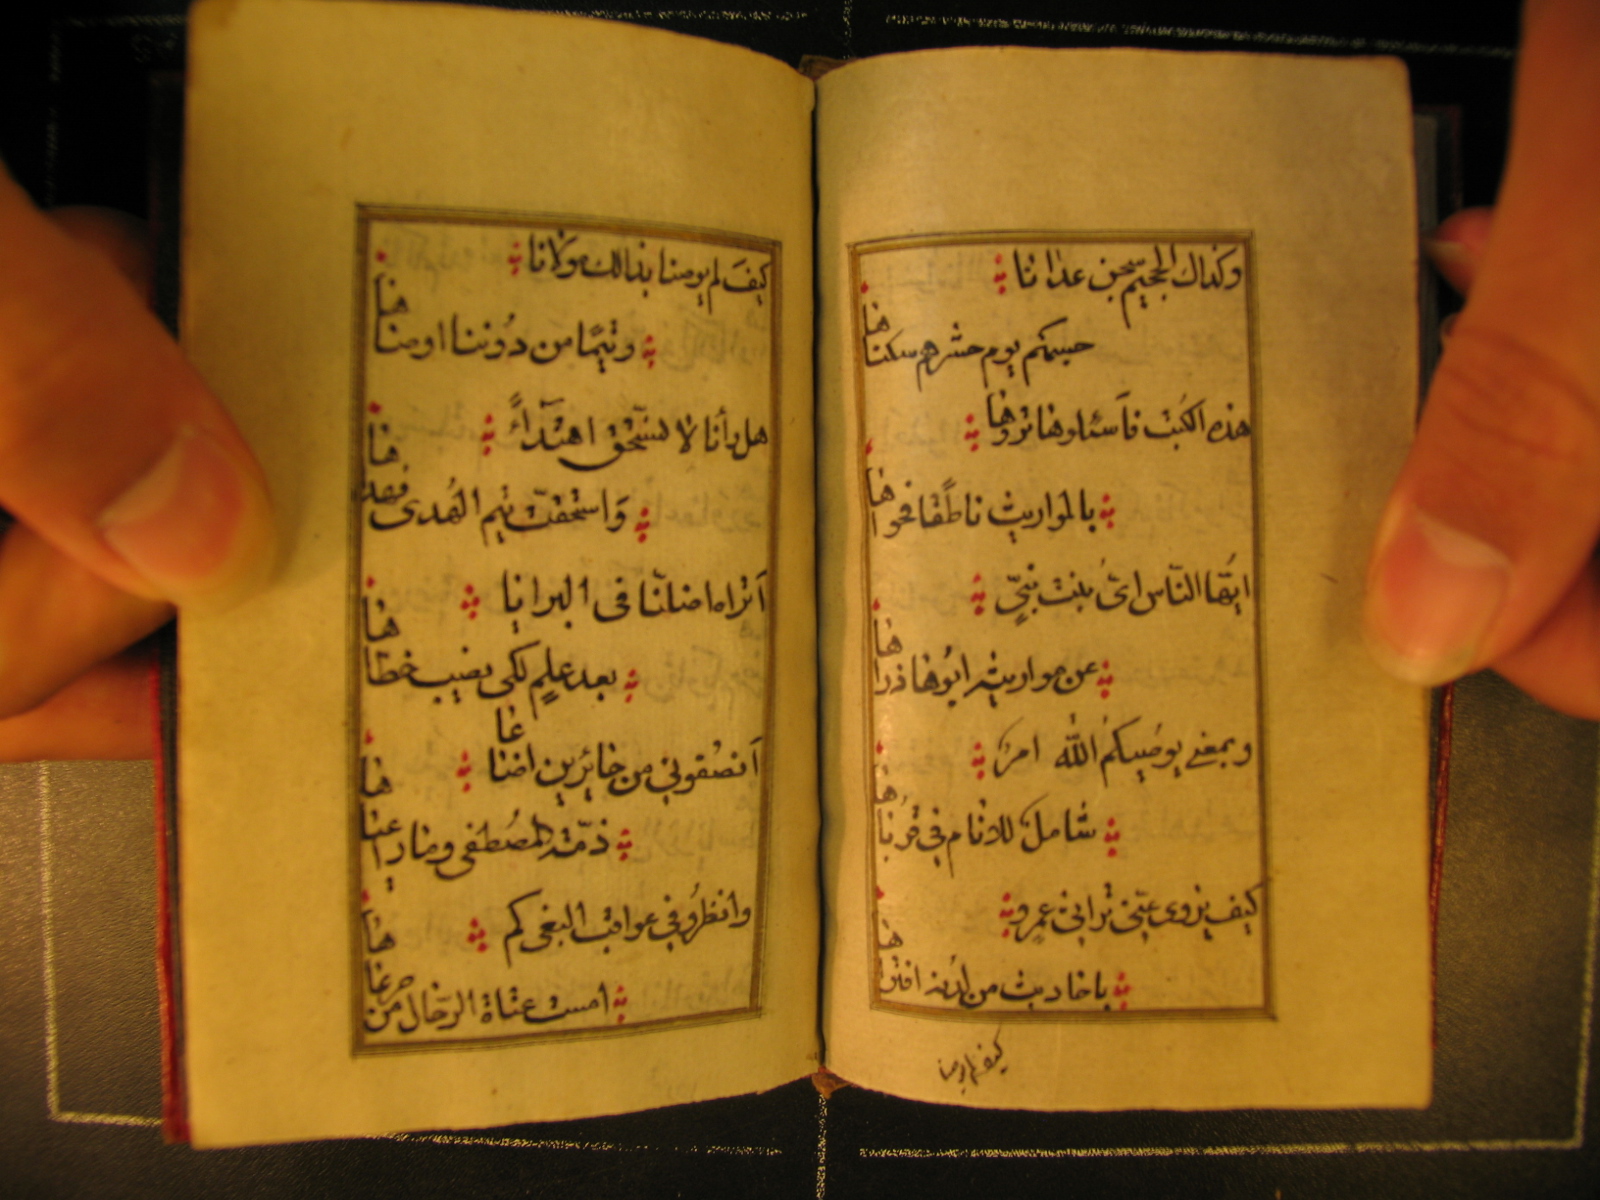 وكذاك الجحيم سجن عدانا
حسبهم يوم حشرهم سكناها
هذه الكتب فاسئلوها تروها
بالمواريث ناطقًا فحواها
ايّها النّاس ايُّ بنت نبيٍّ
عن مواريثه ابُوها ذراها
وبمعنى يوصيكم الله امر
شاملَ للانام في قرباها
كيف يزوى عنّى تراثى عمرو
باحاديث من لدنه افتراها
كيف لم يوصنا
كيفَ لم يوصنا بذالك مولانا
وتيمًا من دُوننا اوصناها
هل رأنا لا نستحّق اهتدآءً
وَاستحقّت تيم الهُدى فهداها
اَتراه اضلّنا فى البرايا
بعد علمٍ لكى نصيب خطاها
اَنصفوني من جائرين اضاعا
ذمّة المصُطفى وما رعياها
وانظروُا في عواقب البغى كم
امست عتاة الرجال من صرعاها